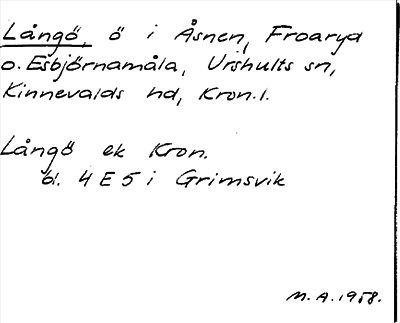 Långö, ö i Åsnen, Froaryd
o. Esbjörnamåla, Urshults sn,
Kinnevalds hd, Kron.l.
Långö ek Kron.
bl. 4 E 5 i Grimsvik
M.A. 1958.